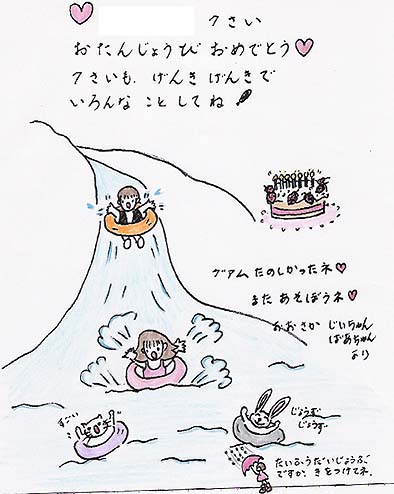 7さい
おたんじょうび おめでとう
7さいも、げんき げんきで
いろんな こと してね
グアム たのしかったネ
また あそぼうネ
おおさか じいちゃん
ばあちゃん
より
すごーい
じょうず
じょうず
たいふうだいじょうぶ
ですか、きをつけてネ。